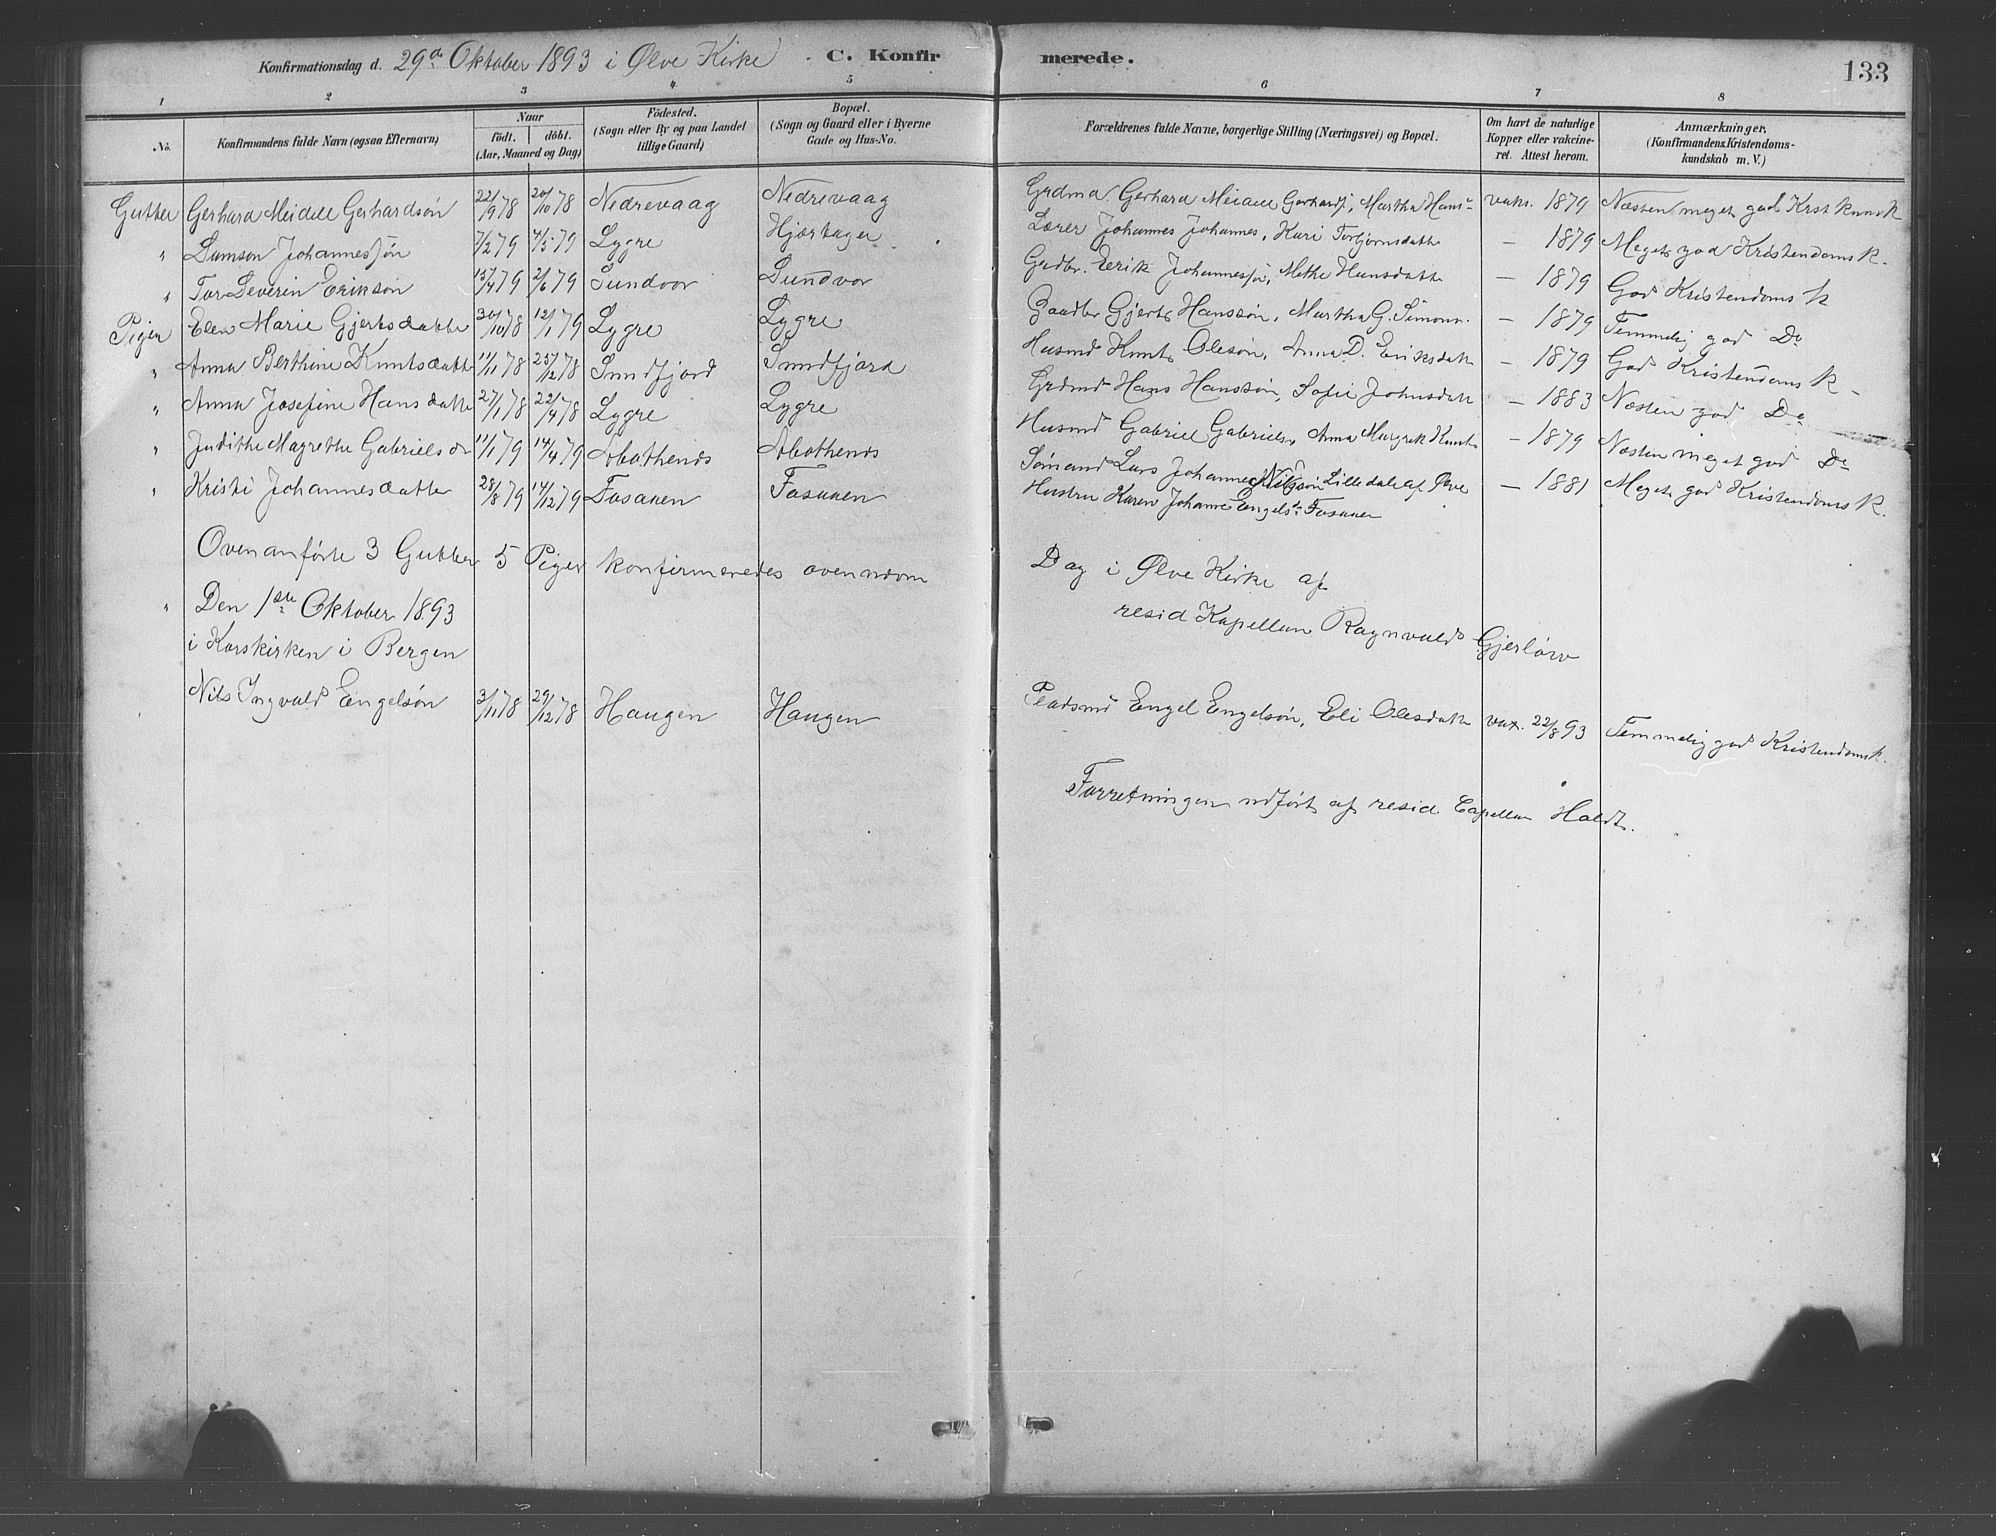 Konfirmationsdag d. 29de Oktober 1893 i Ølve Kirke C. Konfirmerede. 133
1 2 3 4 5 6 7 8
No. Konfirmandens fulde Navn (ogsaa Efternavn) Naar födt. döbt. (Aar, Maaned og Dag) Födested. (Sogn eller By og paa Landet tillige Gaard) Bopæl. (Sogn og Gaard eller i Byerne Gade og Hus-No. Forældrenes fulde Navne, borgerlige Stilling (Næringsvei) og Bopæl. Om havt de naturlige Kopper eller vakcineret. Attest herom. Anmærkninger. (Konfirmandens Kristendomskundskab m. V.)
Gutter Gerhard Meidell Gerhardsön 22/9 78 20/10 78 Nedrevaag Nedrevaag Grdmd Gerhard Meidell Gerhards, Martha Hans vaks. 1879 Næsten meget god Krist kundsk
" Samson Johannessön 7/2 79 4/5 79 Lygre Hjærtager Lærer Johannes Johannes, Kari Torbjørnsdatte — 1879 Meget god Kristendoms K.
" Tor Severin Erikson 15/4 79 2/6 79 Sundvor Sundvor Grdbr. Eerik Johannessøn, Methe Hansdatte — 1879 God Kristendoms K
Piger Elen Marie Gjertsdatte 30/10 78 12/1 79 Lygre Lygre Gjert Hanssön, Martha G. Simons. — 1879 Temmelig god Do
" Anna Berthine Knutsdatte 11/11 78 25/12 78 Sundfjord Sundfjord Husmd Knut Olesön, Anna D. Eriksdatte — 1879 God Kristendoms K —
" Anna Josefine Hansdatte 27/1 78 22/4 78 Lygre Lygre Grdmd Hans Hanssön, Sofie Johnsdatt — 1883 Næsten god Do
" Judithe Magrethe Gabrielsdr 11/1 79 14/4 79 Husmd Gabriel Gabriels, Anna Margreth Knuts — 1879 Næsten meget god Do
" Kristi Johannesdatte 28/8 79 14/12 79 Fosanen Fosanen Sömand Lars Johannes Nilsön Lilledale af Ølve — 1881 Meget god Kristendoms K.
Hustru Karen Johanne Engelsdr Fosanen
Ovenanførte 3 Gutter 5 Piger konfirmeredes ovennævn Dag i Ølve Kirke af
resid Kapellan Ragnvald Gjerløw
" Den 1ste Oktober 1893
i Korskirken i Bergen
Nils Ingvald Engelsön 3/11 78 29/12 78 Haugen Haugen Pladsmd Engel Engelsön, Eli Olesdatte vax. 22/8 93 Temmelig god Kristendomsk.
Forretningen udført af resid. Capellan Haldt.